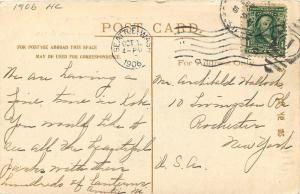 1906 HC
POST CARD.
FOR POSTAGE ABROAD THIS SPACE
MAY BE USED FOR CORRESPONDENCE.
SEATTLE, WASH.
OCT
1906
We are having a
fine time in
You would like to
see all the beautiful
Parks with their
hundreds of lanterns
Mr. Archibald
10 Livingston
Rochester
New York
U.S.A.